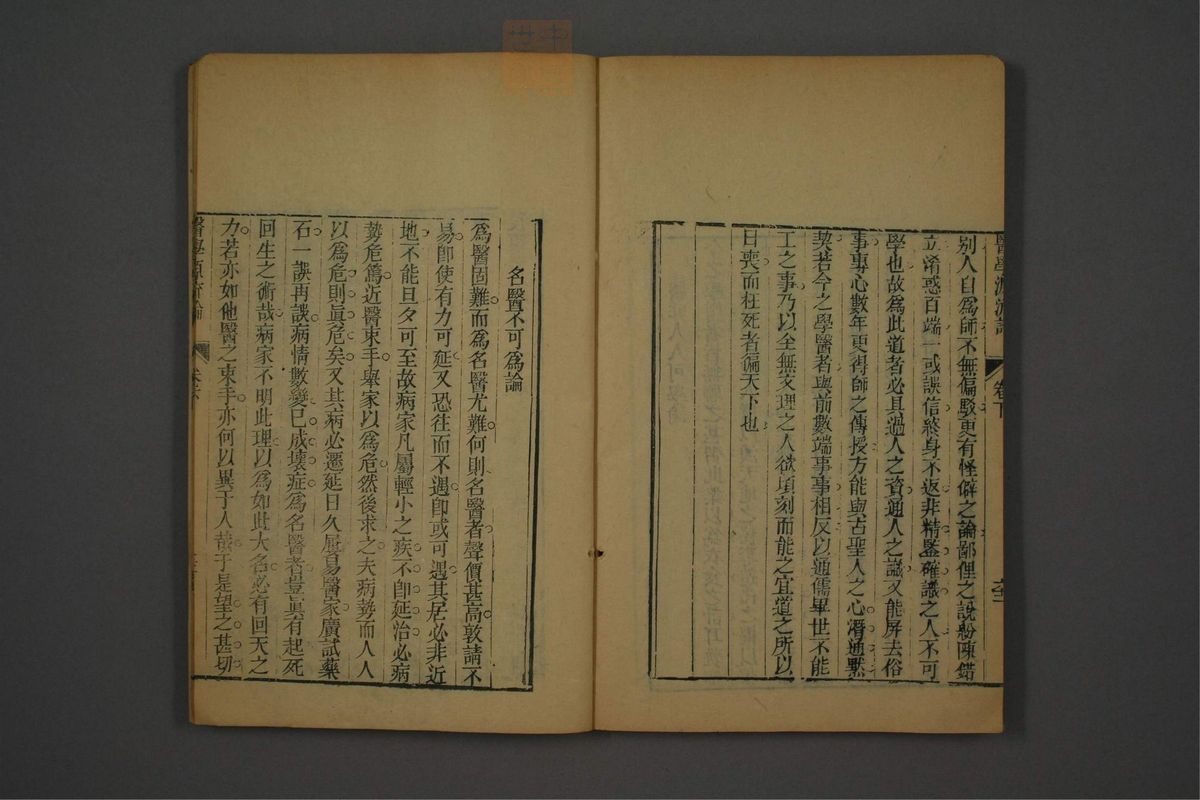 醫學源流論
卷下
別人自爲師不無偏駁更有怪僻之論鄙俚之說紛陳錯
立淆惑百端一或誤信終身不返非精鑒確識之人不可
學也故爲此道者必具過人之資通人之識又能屏去俗
事專心數年更得師之傳授方能與古聖人之心潛通默
契若今之學醫者與前數端事事相反以通儒畢世不能
工之事乃以全無文理之人欲頃刻而能之宜道之所以
日喪而枉死者徧天下也
名醫不可爲論
爲醫固難而爲名醫尤難何則名醫者聲價甚高敦請不
易即使有力可延又恐往而不遇即或可遇其居必非近
地不能旦夕可至故病家凡屬輕小之疾不即延治必病
勢危篤近醫束手舉家以爲危然後求之夫病勢而人人
以爲危則眞危矣又其病必遷延日久屢易醫家廣試藥
石一誤再誤病情數變已成壞症爲名醫者豈眞有起死
回生之術哉病家不明此理以爲如此大名必有回天之
力若亦如他醫之束手亦何以異于人哉于是望之甚切
醫學源流論